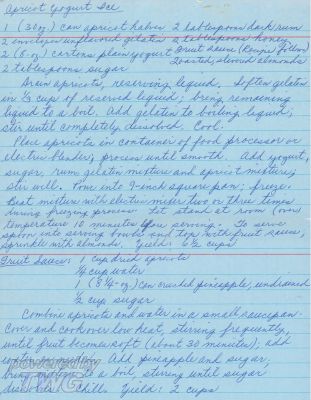 Apricot Yogurt Ice
1 (30oz) can apricot halves 2 tablespoons dark rum
2 envelopes unflavored gelatin 2 tablespoons honey
2 (8 oz) cartons plain yogurt Fruit Sauce (Recipe Follow)
2 tablespoons sugar Toasted, slivered almonds
Drain apricots, reserving liquid. Soften gelatin
in ½ cup of reserved liquid; bring remaining
liquid to a boil. Add gelatin to boiling liquid;
stir until completely dissolved. Cool.
Place apricots in container of food processor or
electric blender; process until smooth. Add yogurt,
sugar, rum, gelatin mixture and apricot mixture;
stir well. Pour into 9-inch square pan; freeze.
Beat mixture with electric mixer two or three times
during freezing process. Let stand at room (over)
temperature 10 minutes before serving. To serve
spoon into serving bowls and top with fruit sauce,
sprinkle with almonds. Yield: 6½ cups
Fruit Sauce: 1 cup dried apricots
cup water
1 (8¼-oz) can crushed pineapple, undrained
½ cup sugar
Combine apricots and water in a small saucepan.
Cover and cook over low heat, stirring frequently,
until fruit becomes soft (about 30 minutes); add
Add pineapple and sugar,
bring to a boil, stirring until sugar
dissolves. Chill. Yield: 2 cups
powered by
TWG